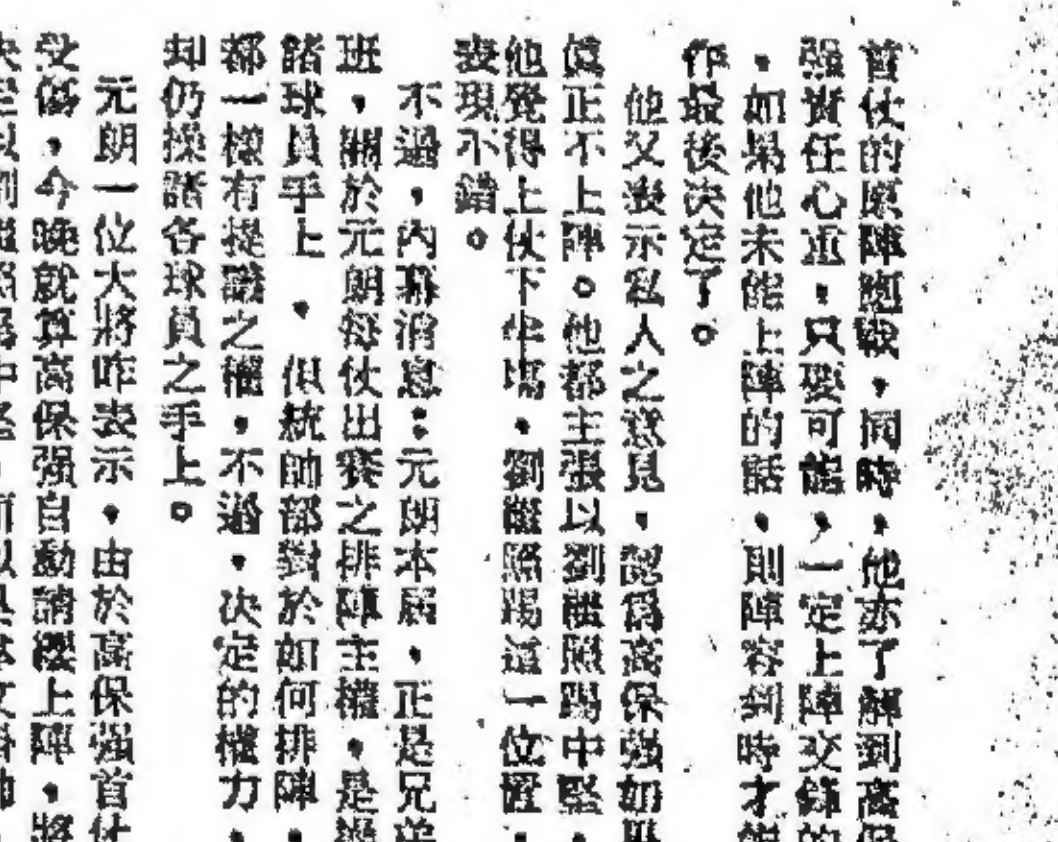 首仗的原陣應戰，同時，他亦了解到高保
强責任心重，只要可能，一定上陣交鋒的
，如果他未能上陣的話，則陣容到時才能
作最後决定了。
他又表示私人之意見，認爲高保强如果
眞正不上陣。他都主張以劉繼照踢中堅，
他覺得上仗下半塲，劉繼照踢這一位置，
表現不錯。
不過，內幕消息：元朗本屆，正是兄弟
班，關於元朗每仗出賽之排陣主權，是操
諸球員手上，但統帥部對於如何排陣，
都一樣有提議之權，不過，决定的權力，
却仍操諸各球員之手上。
元朗一位大將昨表示，由於高保强首仗
受傷，今晚就算高保强自動請纓上陣，將